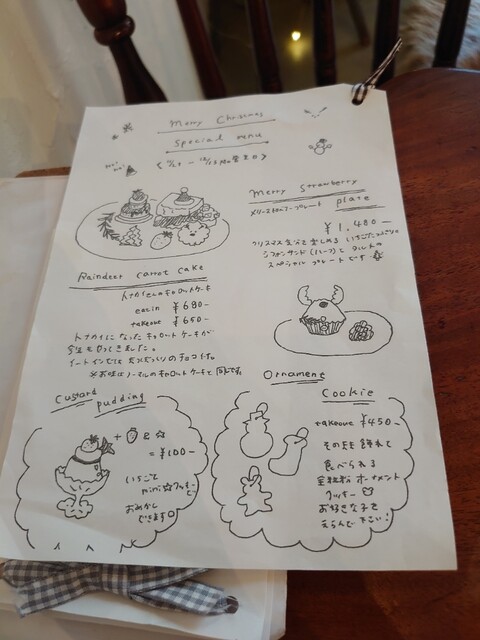 Merry Christmas
Special menu
Merry Strawberry
メリーストロベリープレート plate
¥1,480-
クリスマス気分を楽しめる いちごたっぷりの
シフォンサンド(ハーフ)と タルトの
スペシャル プレートです
Reindeer carrot cake
トナカイさんのキャロットケーキ
eat in ¥680-
takeout ¥650-
トナカイになった キャロット ケーキが
今年もやってきました。
※お味はノーマルのキャロットケーキと同じです。
Custard
pudding
+ &
= ¥100-
いちごと
mini☆クッキーで
おめかし
できます
Ornament
Cookie
takeout ¥450-
そのまま飾れて
食べられる
全粒粉 オーナメント
クッキー
お好きな子を
えらんで下さい!